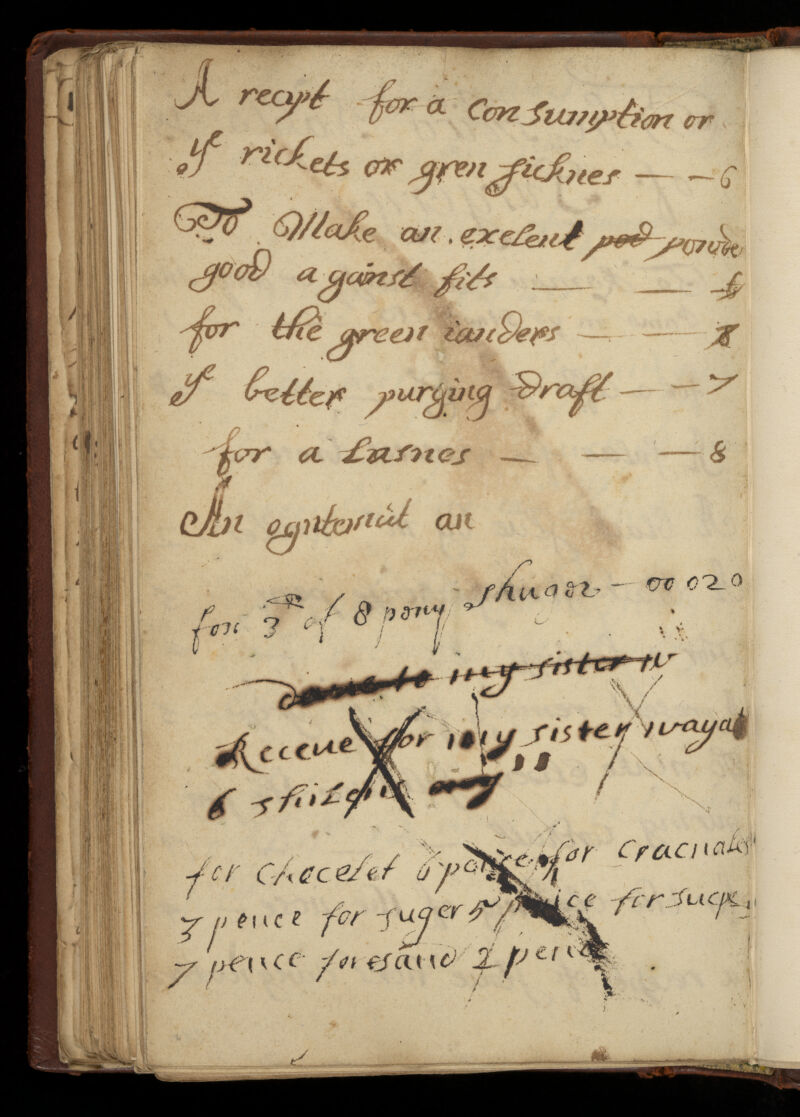 A recipt for a Consumption or
ye rickets or gren sicknes — — 6
To Make an . exelent pod poude
good a gainst fits — — 6
for the green ianders — — 8
ye better purging draft — — 7
for a Lasnes — — — 8
An
an
for 3 of 8 peny shuger — 00 02 0
my sister w
Receue for my sister waya
6 shilens any
for Checelet 6 pence for cracnales
3 pence for suger 5 pence for
7 pence for esand 2 pence